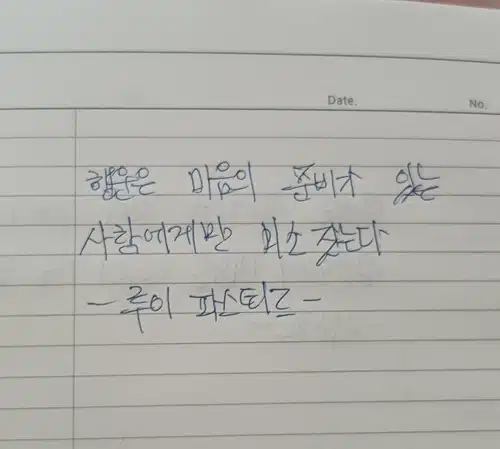 Date.
No.
행운은 마음의 준비가 있는
사람에게만 미소 짓는다
- 루이 파스퇴르 -